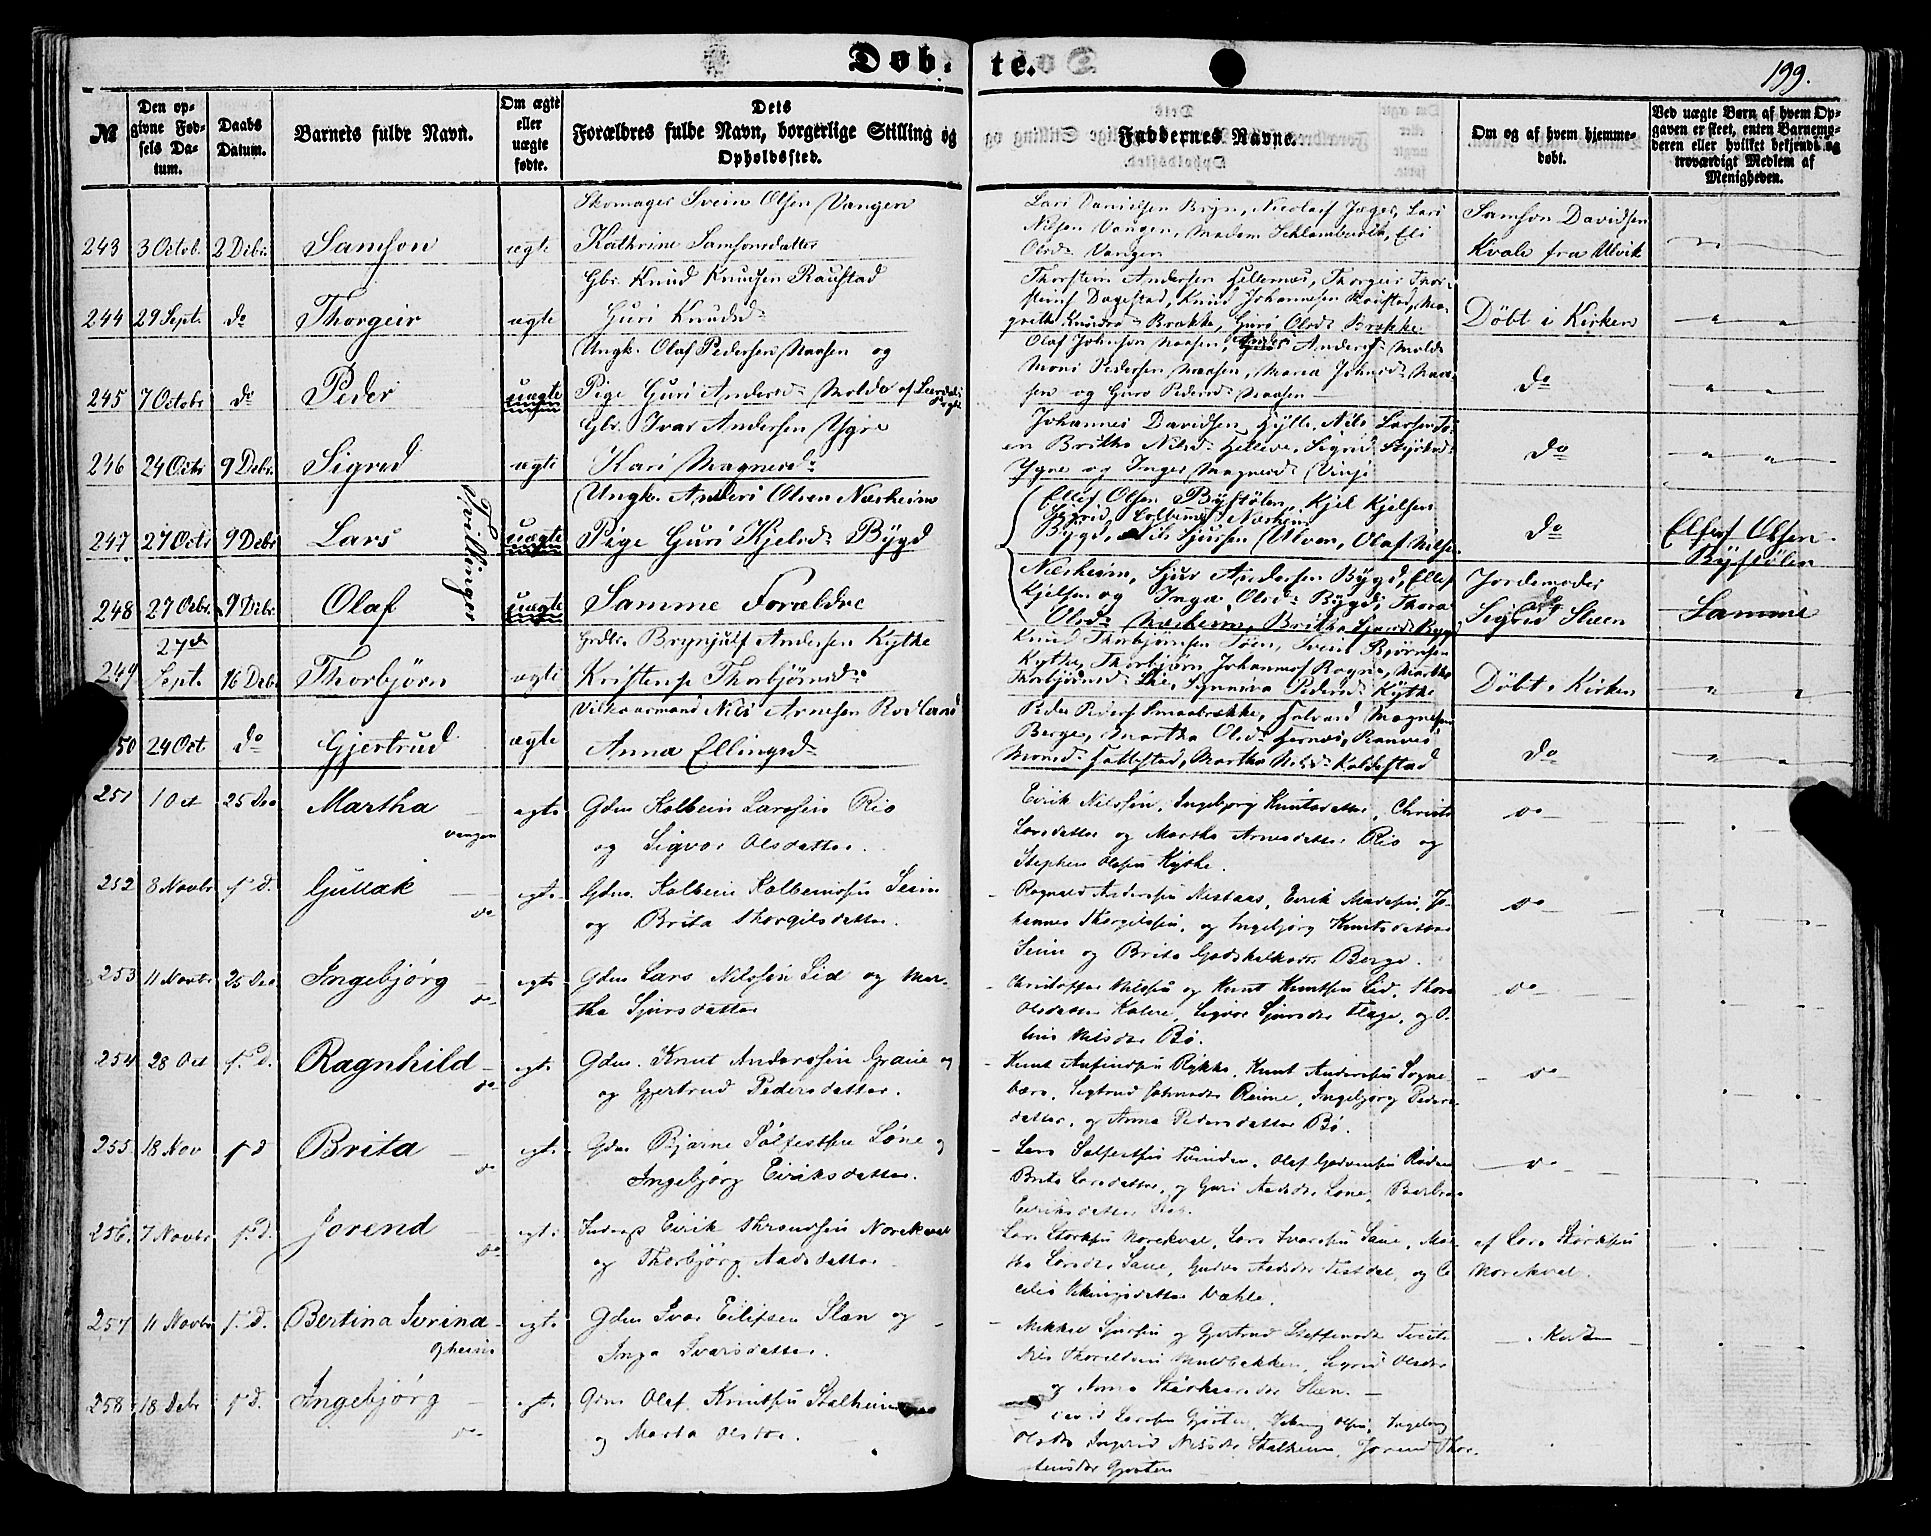 Døbte.
199.
№
Den opgivne Fødsels Datum.
Daabs Datum.
Barnets fulde Navn.
Om ægte eller uægte fødte.
Dets Forældres fulde Navn, borgerlige Stilling og Opholdssted.
Faddernes Navne.
Om og af hvem hjemmedøbt.
Ved uægte Børn af hvem Opgaven er skeet, enten Barnemoderen eller hvilket bekjendt og troværdigt Medlem af Menigheden.
243 3 Octob. 2 Debr. Samson ægte
Skomager Svein Olsen Vangen
Kathrine Samsonsdatter
Lars Danielsen Bryn, Nicolai Jæger, Lars
Nilsen Vangen, Madam Eli
Olsd. Vangen
Samson Davidsen
Kvale fra Ulvik
244 29 Sept. do Thorgeir ægte
Gbr. Knud Knudsen Raustad
Guri Knudsd.
Thorstein Andersen Hellernes, Thorgeir Thor-
steins. Dagestad, Knud Johannesen, Ma-
grethe Knudsd. Brække, Guri Olsd. Brække
Døbt i Kirken
245 7 Octobr do Peder uægte
Ungk. Olaf Pedersen Naasen og
Pige Guri Andersd. Molde af
Olaf Johnson Naasen, Andersd. Molde
Mons Pedersen Naasen, Maria Johnsd. Naa-
sen og Guro Pedersd. Naasen
do
246 24 Octr 9 Debr. Sigrid ægte
Gbr. Ivar Andersen Ygre
Kari Magnesd.
Johannes Davidsen Gjelle, Nils Larsen
Britha Nilsd. Helleve, Sigrid
Ygre og Inger Magnesd. Vinje
do
Tvillinger
247 27 Octr 9 Debr Lars uægte
Ungk. Anders Olsen Næsheim
Pige Guri Kjelsd. Bygd
Ellef Olsen Bystølen, Kjel Kjelsen
Bygd, Sigrid Næsheim
Nils Sjursen Ulven, Olaf Nilsen
do
Ellef Olsen
Bystølen
248 27 Octr. 9 Debr. Olaf uægte
Samme Forældre
Næsheim, Sjur Andersen Bygd, Ellef
Kjelsen og Inga Olsd. Bygd, Thora
Olsd. Næsheim, Britha Sjursd. Bygd
Jordemoder
Sigrid Skeen
Samme
249 27de Sept. 16 Debr Thorbjørn ægte
Brynjulf Andersen Kythe
Kristense Thorbjørnsd.
Knud Thorbjørnsen Tøen, Svein Bjørnsen
Kythe, Thorbjørn Johannes. Rogne, Martha
Thorbjørnsd. Lie, Synneva Pedersd. Kythe
Døbt i Kirken
250 24 Oct. do Gjertrud ægte
Vilkaarmand Nils Arnesen Rødland
Anna Ellingsd.
Peder Peders. Smaabrække, Halvard Magnesen
Berge, Martha Olsd. Hernes, Ranvei
Monsd. Hattestad, Martha Nilsd. Koldestad
do
251 1 Oct 25 Dec Martha Vangen egte
Gdm Kolbein Larssen Rio
og Sigvor Olsdatter.
Eirik Nilssøn, Ingebjørg Knutsdatter, Christi
Larsdatter og Martha Arnesdatter Rio og
Stephen Olssøn Kythe.
do
252 8 Novbr s. D. Gullak do egte
Gdm. Kolbein Kolbeinssøn Seim
og Brita Thorgilsdatter.
Ragnald Anderssøn Nestaas, Eirik Madssøn, Jo-
hannes Thorgilssøn, og Ingebjørg Knutsdatter
Seim og Brita Godskalksdtr Berge.
do
253 11 Novbr 25 Dec Ingebjørg do egte
Gdm Lars Nilssøn Lid og Mar-
tha Sjursdatter
Christoffer Nilssøn og Knut Knutssøn Lid, Thora
Olsdatter, Sigvor Sjursdtr Flage, og
Nilsdtr Bø.
do
254 28 Oct s. D. Ragnhild do egte
Gdm. Knut Anderssøn Graue og
og Gjertrud Pedersdatter.
Knut Anfindssøn Rykke, Knut Anderssøn
Reime, Ingebjørg Peders-
datter, og Anna Pedersdatter Bø.
do
255 18 Nov s D Brita do egte
Gdm Bjarne Sølfestssøn Løne og
Ingebjørg Eiriksdatter.
Lars Sølfestssøn Tvinden, Olaf
Brita Larsdatter, og Guri Aadsdtr Løne, Barbra
Eiriksdatter
do
256. 7 Novbr s. D. Jorend do egte
Inderst Eirik Throndssøn Norekval
og Thorbjørg Aadsdatter
Lars Størkssøn Norekval, Lars Ivarssøn Saue, Mar-
tha Larsdtr Saue, Gudve Aadsdtr Testdal, og Ce-
cilia Vikingsdatter Væhle.
af Lars Størkssøn
Norekval.
257 11 Novbr s. D. Bertina Iverina Opheims egte
Gdm Ivar Eilifsen Slæn og
Inga Ivarsdatter.
Mikkel Sjurssøn og Gjertrud Steffensdtr Tveite
Nils Muldbakken, Sigrid Olsdtr
og Anna Slæn.
258 18 Debr s D. Ingebjørg do egte
Gdm Olaf Knutssøn Stalheim
og Marta Olsdtr.
David Larssøn Gjørten, Viking Olssøn, Ingeborg
Olsdtr Ingrid Nilsdtr Stalheim, Jorend Thor-
stensdtr Gjørten